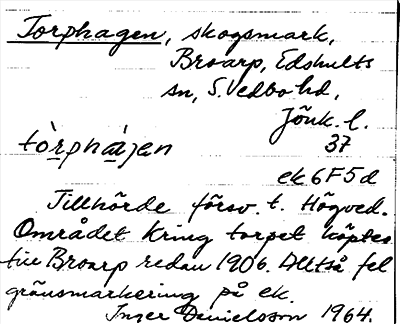 Torphagen, skogsmark,
Broarp, Edshults
sn, S. Vedbo hd,
Jönk. l.
37
ek 6F5d
Tillhörde försv. t. Högved.
Området kring torpet köptes
till Broarp redan 1906. Alltså fel
gränsmarkering på ek.
Inger Danielsson 1964.